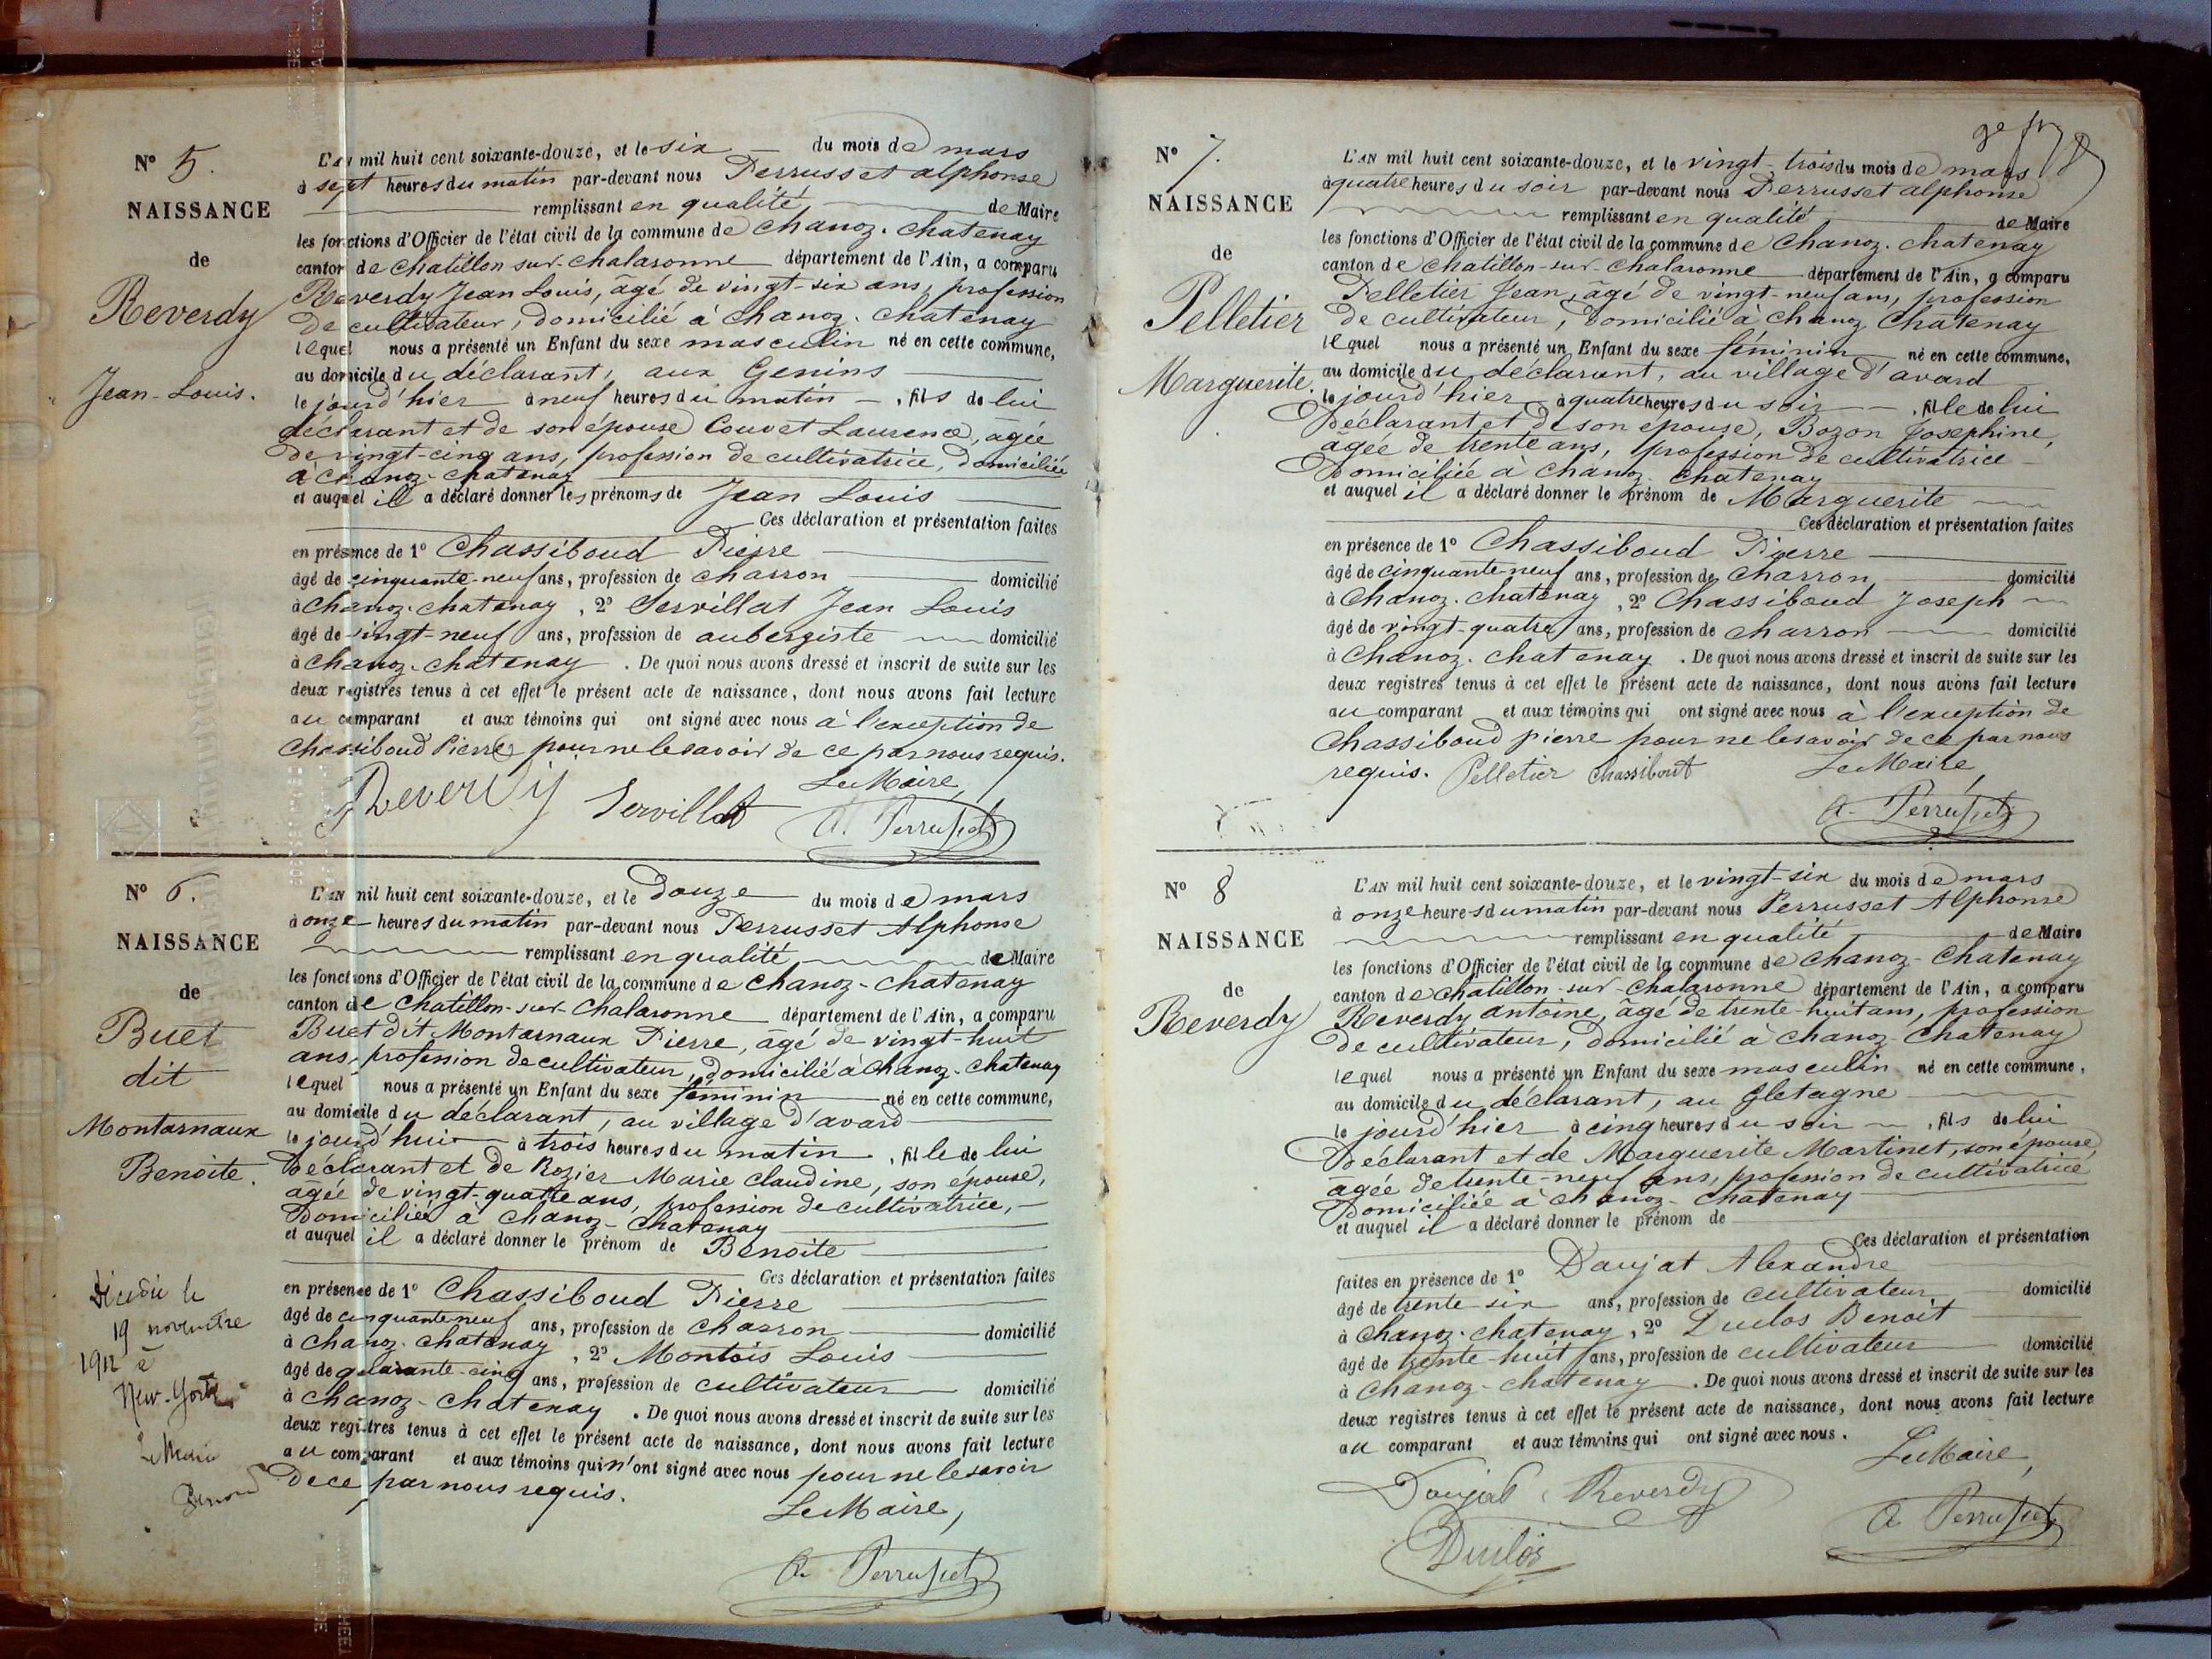 N° 5.
NAISSANCE
de
Reverdy
Jean-Louis.
L'AN mil huit cent soixante-douze, et le six du mois de mars
à sept heures du matin par-devant nous Perrusset alphonse
remplissant en qualité, de Maire
les fonctions d'Officier de l'état civil de la commune de Chanoz-Chatenay
canton de Chatillon-sur-Chalaronne département de l'Ain, a comparu
Reverdy Jean Louis, âgé de vingt-six ans, profession
de cultivateur, domicilié à Chanoz-Chatenay
lequel nous a présenté un Enfant du sexe masculin né en cette commune,
au domicile du déclarant, aux Genins
le jourd'hier à neuf heures du matin, fils de lui
déclarant et de son épouse Couvet Laurence, agée
de vingt-cinq ans, profession de cultivatrice, domiciliée
à Chanoz-Chatenay
et auquel il a déclaré donner les prénoms de Jean Louis
Ces déclaration et présentation faites
en présence de 1° Chassiboud Pierre
âgé de cinquante-neuf ans, profession de charron domicilié
à Chanoz-Chatenay, 2° Servillat Jean Louis
âgé de vingt-neuf ans, profession de aubergiste domicilié
à Chanoz-Chatenay. De quoi nous avons dressé et inscrit de suite sur les
deux registres tenus à cet effet le présent acte de naissance, dont nous avons fait lecture
au comparant et aux témoins qui ont signé avec nous à l'exception de
Chassiboud Pierre pour ne le savoir de ce par nous requis.
Le Maire,
Reverdy Servillat A. Perrusset
N° 6.
NAISSANCE
de
Buet
dit
Montarnaux
Benoite.
Décédée le
19 novembre
1912 à
New-York
Le Maire
L'AN mil huit cent soixante-douze, et le Douze du mois de mars
à onze heures du matin par-devant nous Perrusset Alphonse
remplissant en qualité, de Maire
les fonctions d'Officier de l'état civil de la commune de Chanoz-Chatenay
canton de Chatillon-sur-Chalaronne département de l'Ain, a comparu
Buet dit Montarnaux Pierre, âgé de vingt-huit
ans, profession de cultivateur, domicilié à Chanoz-Chatenay
lequel nous a présenté un Enfant du sexe féminin né en cette commune,
au domicile du déclarant, au village d'avard
le jourd'hui à trois heures du matin, fille de lui
déclarant et de Rozier Marie Claudine, son épouse,
âgée de vingt-quatre ans, profession de cultivatrice,
domiciliée à Chanoz-Chatenay
et auquel il a déclaré donner le prénom de Benoite
Ces déclaration et présentation faites
en présence de 1° Chassiboud Pierre
âgé de cinquante neuf ans, profession de charron domicilié
à Chanoz-Chatenay, 2° Montois Louis
âgé de quarante-cinq ans, profession de cultivateur domicilié
à Chanoz-Chatenay. De quoi nous avons dressé et inscrit de suite sur les
deux registres tenus à cet effet le présent acte de naissance, dont nous avons fait lecture
au comparant et aux témoins qui n'ont signé avec nous pour ne le savoir
de ce par nous requis.
Le Maire,
A. Perrusset
N° 7.
NAISSANCE
de
Pelletier
Marguerite.
L'AN mil huit cent soixante-douze, et le vingt-trois du mois de mars
à quatre heures du soir par-devant nous Perrusset alphonse
remplissant en qualité, de Maire
les fonctions d'Officier de l'état civil de la commune de Chanoz-Chatenay
canton de Chatillon-sur-Chalaronne département de l'Ain, a comparu
Pelletier Jean, âgé de vingt-neuf ans, profession
de cultivateur, domicilié à Chanoz Chatenay
lequel nous a présenté un Enfant du sexe féminin né en cette commune,
au domicile du déclarant, au village d'avard
le jourd'hier à quatre heures du soir, fille de lui
déclarant et de son épouse, Bozon Josephine,
agée de trente ans, profession de cultivatrice
domiciliée à Chanoz Chatenay
et auquel il a déclaré donner le prénom de Marguerite
Ces déclaration et présentation faites
en présence de 1° Chassiboud Pierre
âgé de cinquante-neuf ans, profession de charron, domicilié
à Chanoz-Chatenay, 2° Chassiboud Joseph
âgé de vingt-quatre ans, profession de charron domicilié
à Chanoz-Chatenay. De quoi nous avons dressé et inscrit de suite sur les
deux registres tenus à cet effet le présent acte de naissance, dont nous avons fait lecture
au comparant et aux témoins qui ont signé avec nous à l'exception de
Chassiboud pierre pour ne le savoir de ce par nous
requis. Pelletier Chassibout Le Maire,
A. Perrusset
N° 8
NAISSANCE
de
Reverdy
L'AN mil huit cent soixante-douze, et le vingt-six du mois de mars
à onze heures du matin par-devant nous Perrusset Alphonse
remplissant en qualité, de Maire
les fonctions d'Officier de l'état civil de la commune de Chanoz-Chatenay
canton de Chatillon-sur-Chalaronne département de l'Ain, a comparu
Reverdy antoine, âgé de trente-huit ans, profession
de cultivateur, domicilié à Chanoz-Chatenay
lequel nous a présenté un Enfant du sexe masculin né en cette commune,
au domicile du déclarant, au Gletagne
le jourd'hier à cinq heures du soir, fils de lui
déclarant et de Marguerite Martinet, son épouse,
agée de trente-neuf ans, profession de cultivatrice
domiciliée à Chanoz-Chatenay
et auquel il a déclaré donner le prénom de
Ces déclaration et présentation
faites en présence de 1° Daujat Alexandre
âgé de trente six ans, profession de cultivateur domicilié
à Chanoz-Chatenay, 2° Duclos Benoit
âgé de trente-huit ans, profession de cultivateur domicilié
à Chanoz-Chatenay. De quoi nous avons dressé et inscrit de suite sur les
deux registres tenus à cet effet le présent acte de naissance, dont nous avons fait lecture
au comparant et aux témoins qui ont signé avec nous.
Le Maire,
Daujat Reverdy
Duclos A Perrusset